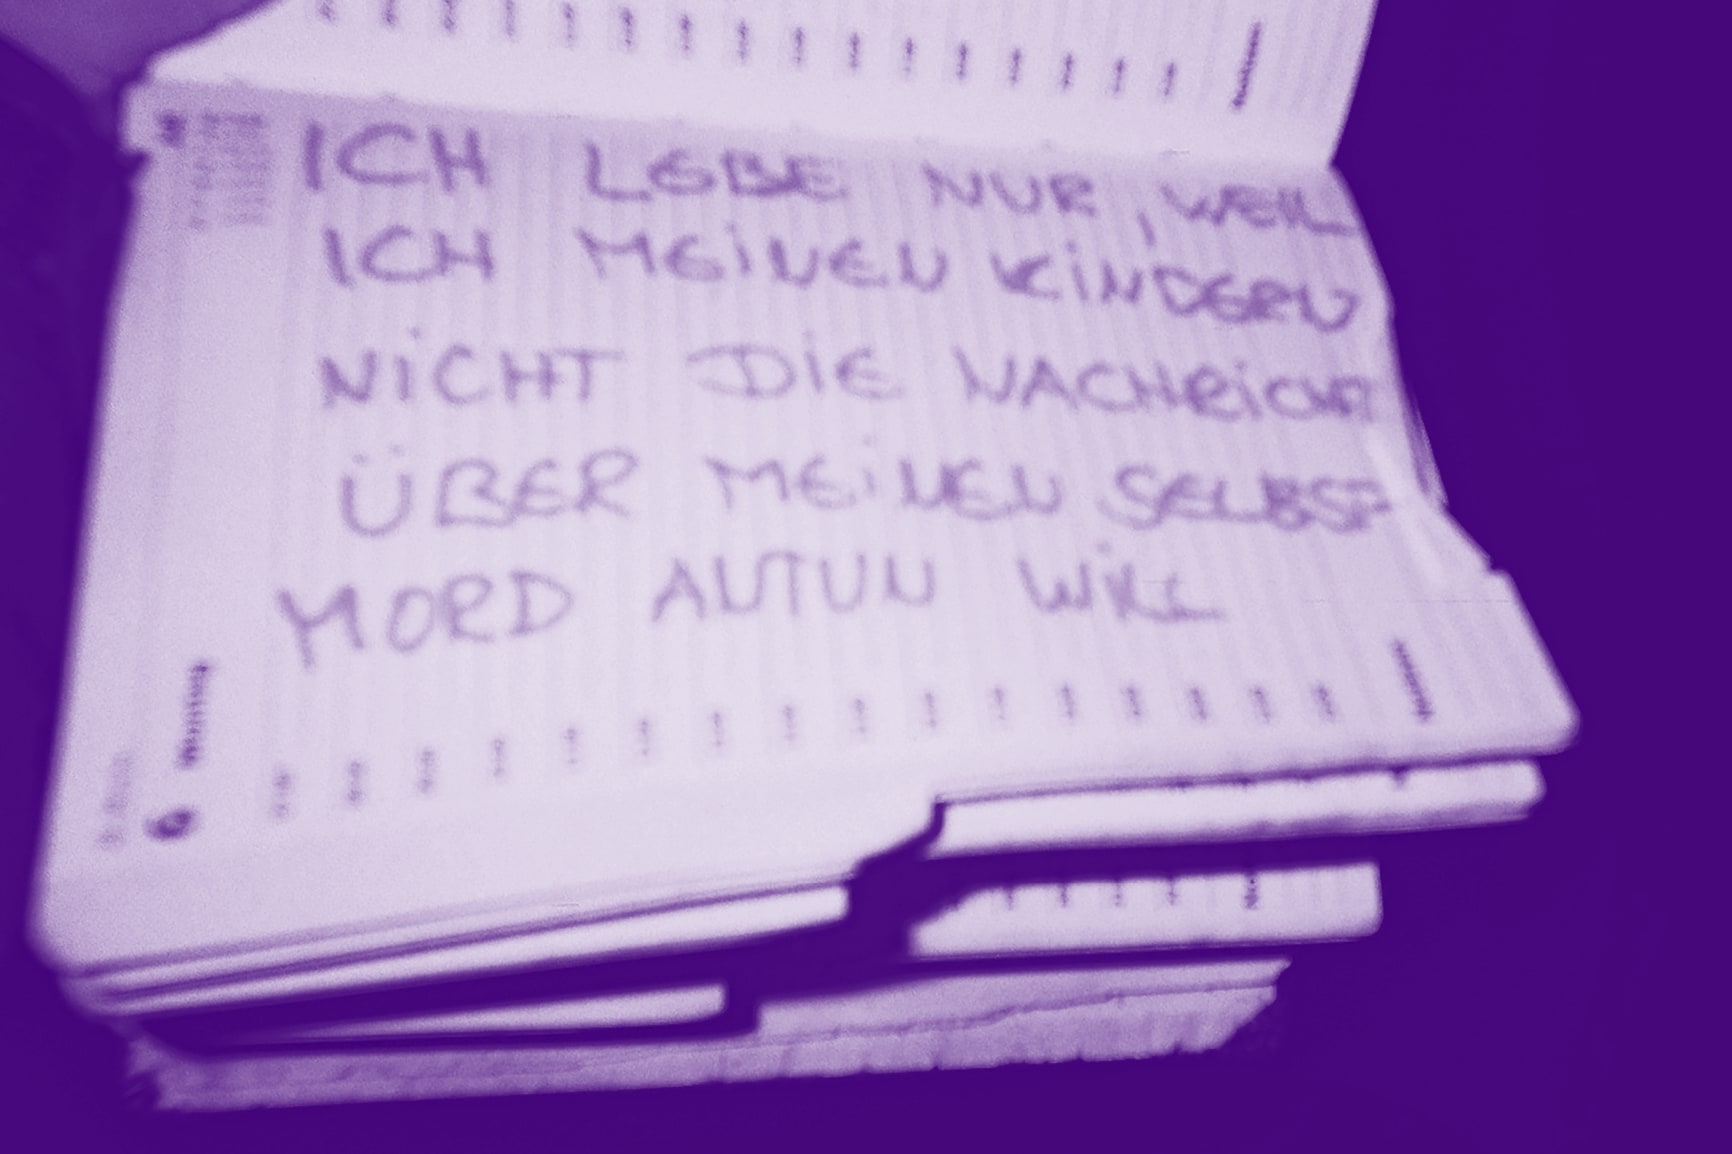 ICH LEBE NUR, WEIL
ICH MEINEN KINDERN
NICHT DIE NACHRICHT
ÜBER MEINEN SELBST
MORD ANTUN WILL
6